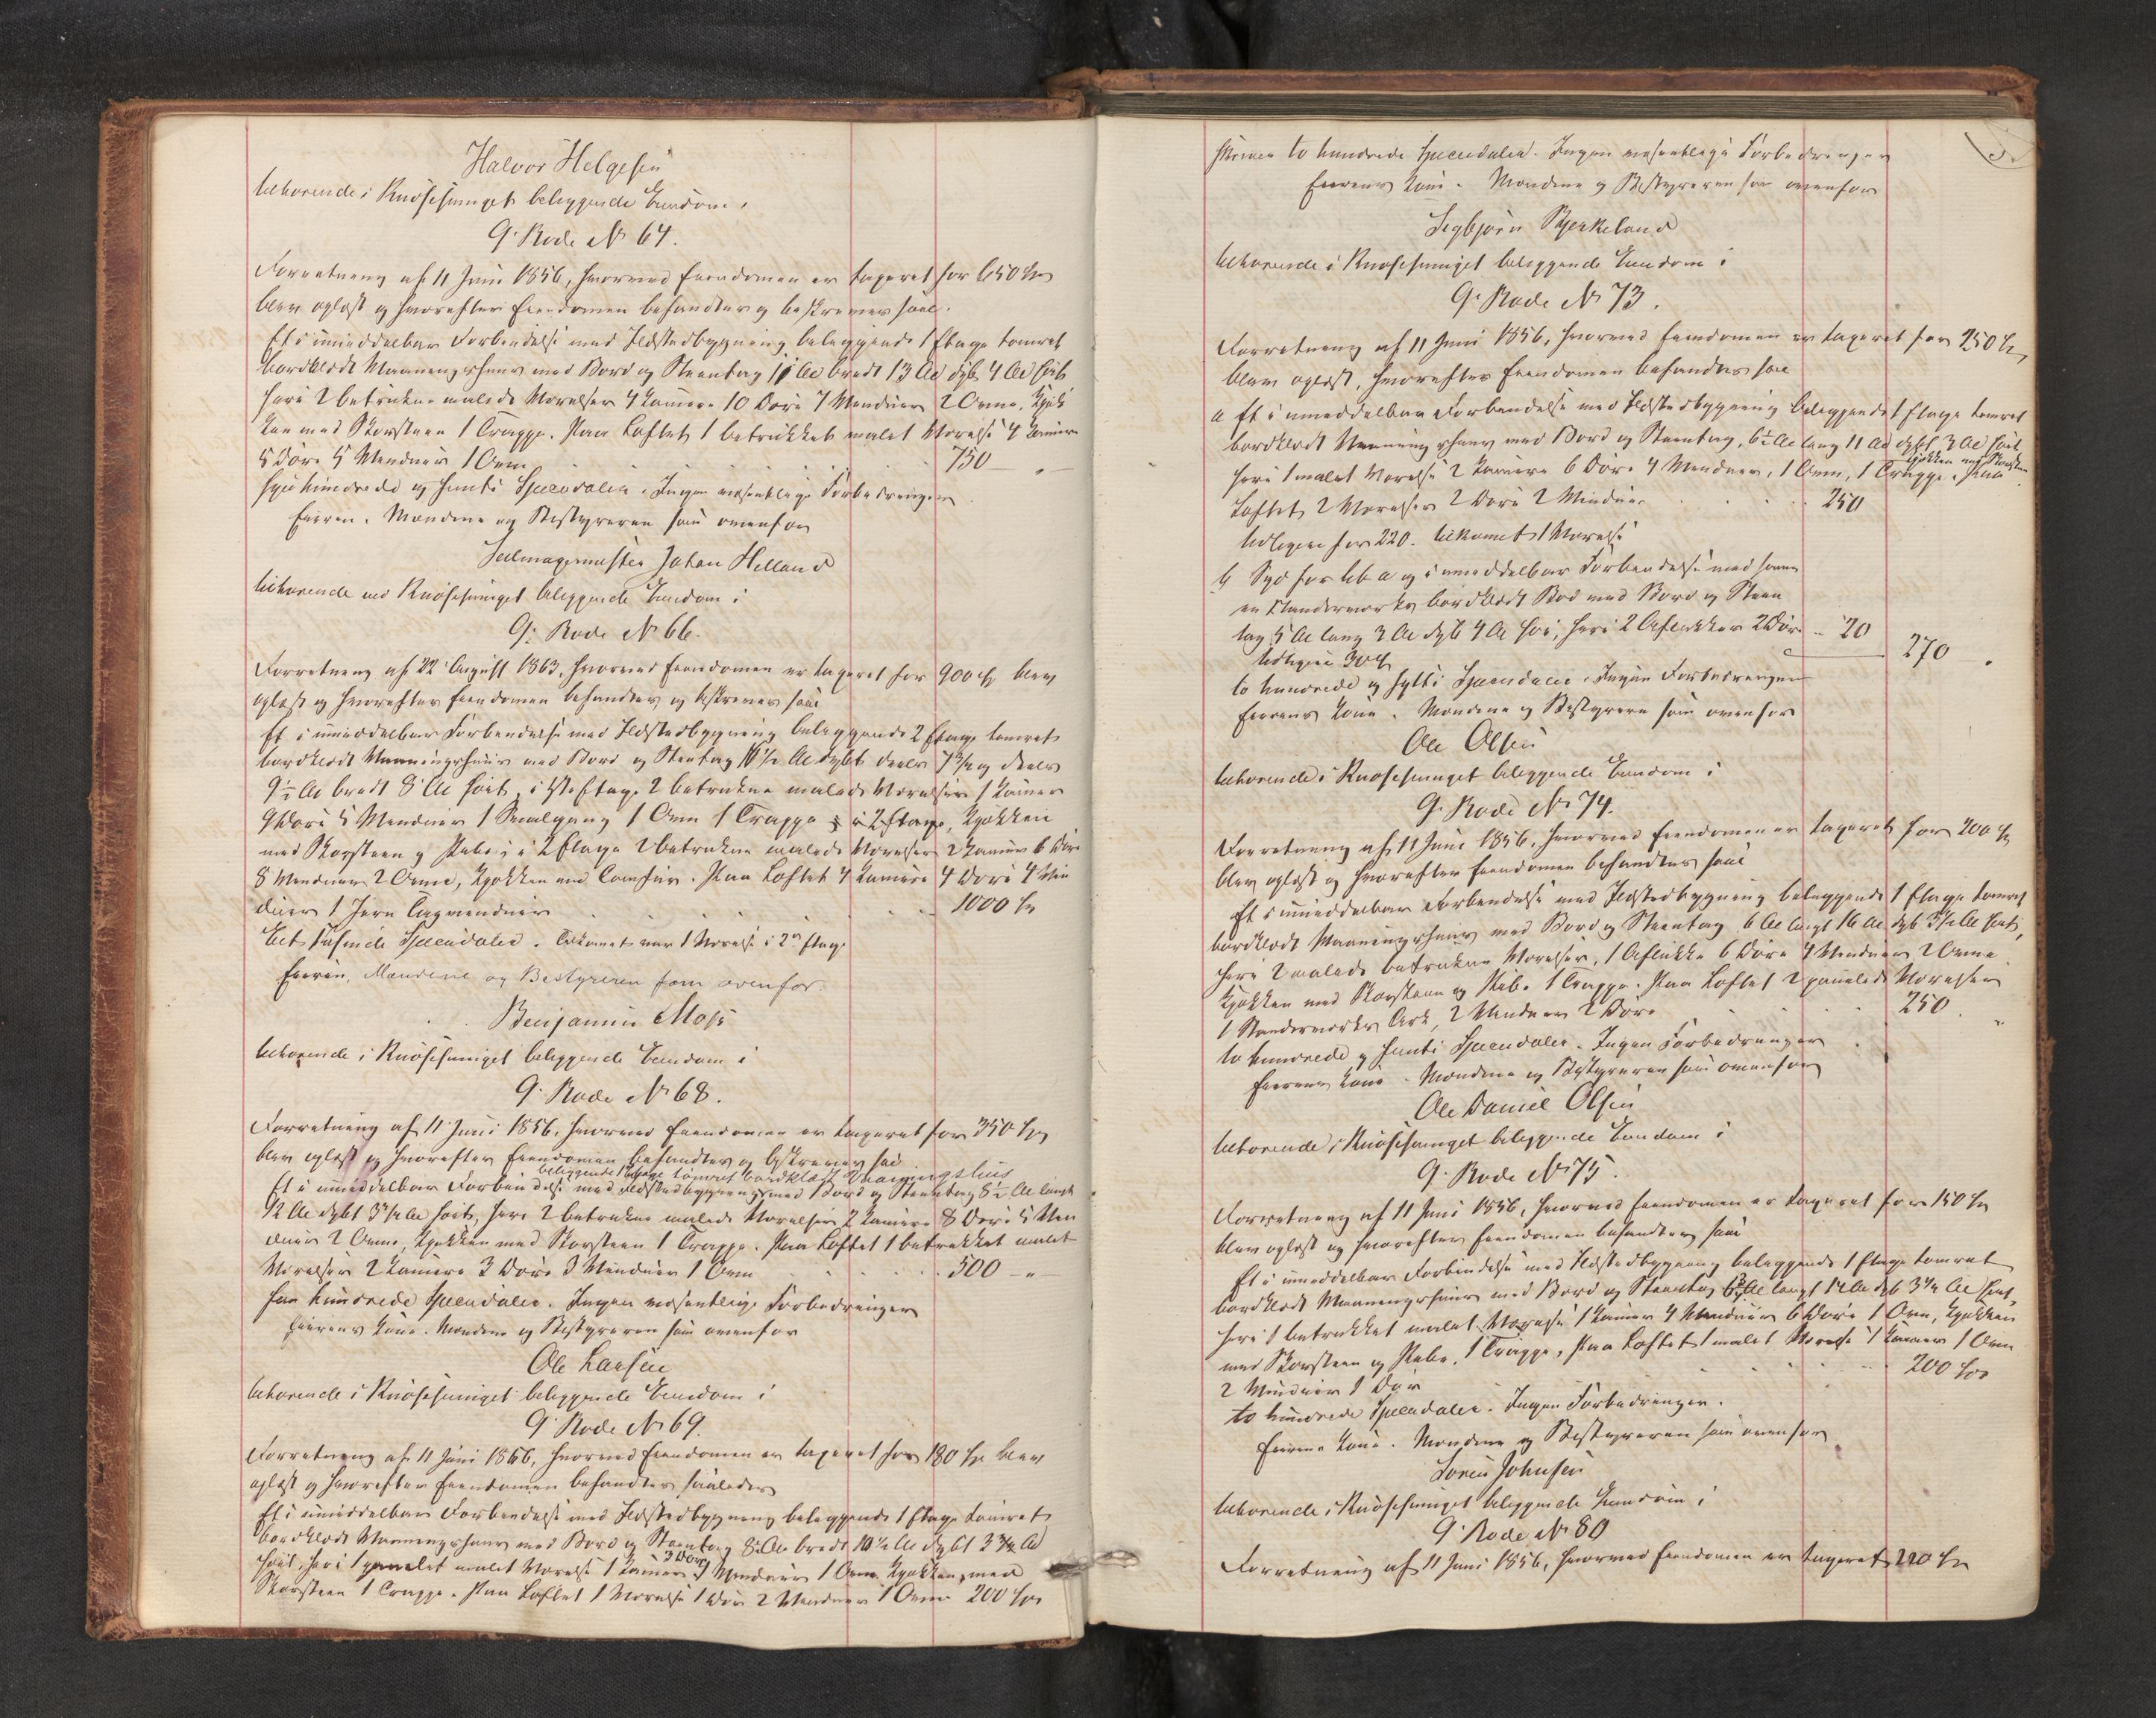 Halvor Helgesen
tilhørende i Knøsesmuget beliggende Eiendom,
9de Rode No 64.
Forretning af 11 Juni 1856, hvorved Eiendommen er taxeret for 650 Spd
blev oplæst og hvorefter Eiendommen befandtes og beskreves saal.
Et i umiddelbar Forbindelse med Ildstedbygning beliggende 1 Etage tømret
bordklædt Vaaningshuus med Bord og Steentag 11 Al bredt 13 Al dyb 4 Al høit
heri 2 betrukne malede Værelser 4 Kamere 10 Døre 7 Vinduer 2 Ovne, Kjøk
ken med Skorsteen 1 Trappe. Paa Loftet 1 betrukket malet Værelse 4 Kamere
5 Døre 5 Vinduer 1 Ovn 750 "
syv hundrede og femti Speciedaler. Ingen væsentlige Forbedringer
Eieren. Mændene og Bestyreren som ovenfor
Seilmagermester Johan Helland
tilhørende ved Knøsesmuget beliggende Eiendom i
9de Rode No 66.
Forretning af 22 August 1863, hvorved Eiendommen er taxeret for 900 Spd blev
oplæst og hvorefter Eiendommen befandtes og beskreves saal
Et i umiddelbar Forbindelse med Ildstedbygning beliggende 2 Etage tømret
bordklædt Vaaningshuus med Bord og Steentag 11 1/2 Al dybt deels 7 3/4 og deels
9 1/2 Al bredt 8 Al høit, i 1ste Etage 2 betrukne malede Værelser 1 Kamer
9 Døre 5 Vinduer 1 Svalgang 1 Ovn 1 Trappe i 2 Etage, Kjøkken
med Skorsteen og Kabe; i 2 Etage 2 betrukne malede Værelser 2 Kamere 6 Døre
8 Vinduer 2 Ovne, Kjøkken med Comfur. Paa Loftet 4 Kamere 4 Døre 4 Vin
duer 1 Jern Tagvindue 1000 Spd
Eet Tusinde Speciedaler. Tilkomet var 1 Værelse i 2den Etage
Eieren, Mændene og Bestyreren som ovenfor.
Benjamin Moss
tilhørende i Knøsesmuget beliggende Eiendom i
9de Rode No 68.
Forretning af 11 Juni 1856, hvorved Eiendommen er taxeret for 350 Spd
blev oplæst og hvorefter Eiendommen befandtes og beskreves saal
beliggende 1 Etage tømret bordklædt Vaaningshus
Et i umiddelbar Forbindelse med Ildstedbygning med Bord og Steentag 8 1/2 Al langt
12 Al dybt 3 3/4 Al høit, heri 2 betrukne malede Værelser 2 Kamere 8 Døre 5 Vin
duer 2 Ovne, Kjøkken med Skorsteen 1 Trappe. Paa Loftet 1 betrukket malet
Værelse 2 Kamere 3 Døre 3 Vinduer 1 Ovn 500 "
fem hundrede Speciedaler. Ingen væsentlige Forbedringer
Eierens Kone. Mændene og Bestyreren som ovenfor
Ole Larsen
tilhørende i Knøsesmuget beliggende Eiendom i
9de Rode No 69.
Forretning af 11 Juni 1856, hvorved Eiendommen er taxeret for 180 Spd blev
oplæst og hvorefter Eiendommen befandtes saaledes
Et i umiddelbar Forbindelse med Ildstedbygning beliggende 1 Etage tømret
bordklædt Vaaningshuus med Bord og Steentag 8 Al bredt 10 1/2 Al dybt 3 3/4 Al
høit, heri 1 panelet malet Værelse 1 Kamer 3 Døre Vinduer 1 Ovn Kjøkken, med
Skorsteen 1 Trappe. Paa Loftet 1 Værelse 1 Dør 2 Vinduer 1 Ovn 200 Spd
skriver to hundrede Speciedaler. Ingen væsentlige Forbedringer
Eierens Kone. Mændene og Bestyreren som ovenfor
Segbjørn Bjerkeland
tilhørende i Knøsesmuget beliggende Eiendom i
9de Rode No 73.
Forretning af 11 Juni 1856, hvorved Eiendommen er taxeret for 250 Spd,
blev oplæst, hvorefter Eiendommen befandtes saal
a Et i umiddelbar Forbindelse med Ildstedbygning beliggende 1 Etage tømret
bordklædt Vaaningshuus med Bord og Steentag, 6 1/2 Al lang 11 Al dybt 3 Al høit
Kjøkken med Skorsteen
heri 1 malet Værelse 2 Kamere 6 Døre 4 Vinduer, 1 Ovn, 1 Trappe. Paa
Loftet 2 Værelser 2 Døre 2 Vinduer 250
tidligere for 220. tilkomet 1 Værelse
b Syd for Lit a og i umiddelbar Forbindelse med samme
en Standerværks bordklædt Bod med Bord og Steen
tag 5 Al lang 3 Al dyb 4 Al høi, heri 2 Aflukker 2 Døre 20 270
tidligere 30
to hundrede og sytti Speciedaler. Ingen Forbedringer
Eierens Kone. Mændene og Bestyreren som ovenfor
Ole Olsen
tilhørende i Knøsesmuget beliggende Eiendom i
9de Rode No 74.
Forretning af 11 Juni 1856, hvorved Eiendommen er taxeret for 200 Spd
blev oplæst og hvorefter Eiendommen befandtes saal
Et i umiddelbar Forbindelse med Ildstedbygning beliggende 1 Etage tømret
bordklædt Vaaningshuus med Bord og Steentag 6 Al langt 16 Al dyb 3 1/2 Al høit,
heri 2 malede betrukne Værelser, 1 Aflukke 6 Døre 4 Vinduer 2 Ovne
Kjøkken med Skorsteen og Kabe 1 Trappe. Paa Loftet 2 panelede Værelser
1 Standerværks Ark, 2 Vinduer 2 Døre 250 "
to hundrede og femti Speciedaler. Ingen Forbedringer
Eierens Kone. Mændene og Bestyreren som ovenfor
Ole Daniel Olsen
tilhørende i Knøsesmuget beliggende Eiendom i
9de Rode No 75.
Forretning af 11 Juni 1856, hvorved Eiendommen er taxeret for 150 Spd
blev oplæst og hvorefter Eiendommen befandtes saal
Et i umiddelbar Forbindelse med Ildstedbygning beliggende 1 Etage tømret
bordklædt Vaaningshuus med Bord og Steentag Al langt 12 Al dyb 3 1/2 Al høit,
heri 1 betrukket malet Værelse 1 Kamer 4 Vinduer 6 Døre 1 Ovn, Kjøkken
med Skorsteen og Kabe, 1 Trappe, Paa Loftet 1 malet Værelse 1 Kamer 1 Ovn
2 Vinduer 1 Dør 200 Spd
to hundrede Speciedaler. Ingen Forbedringer.
Eierens Kone. Mændene og Bestyreren som ovenfor
Søren Johnsen
tilhørende i Knøsesmuget beliggende Eiendom i
9de Rode No 80
Forretning af 11 Juni 1856, hvorved Eiendommen er taxeret 220 Spd